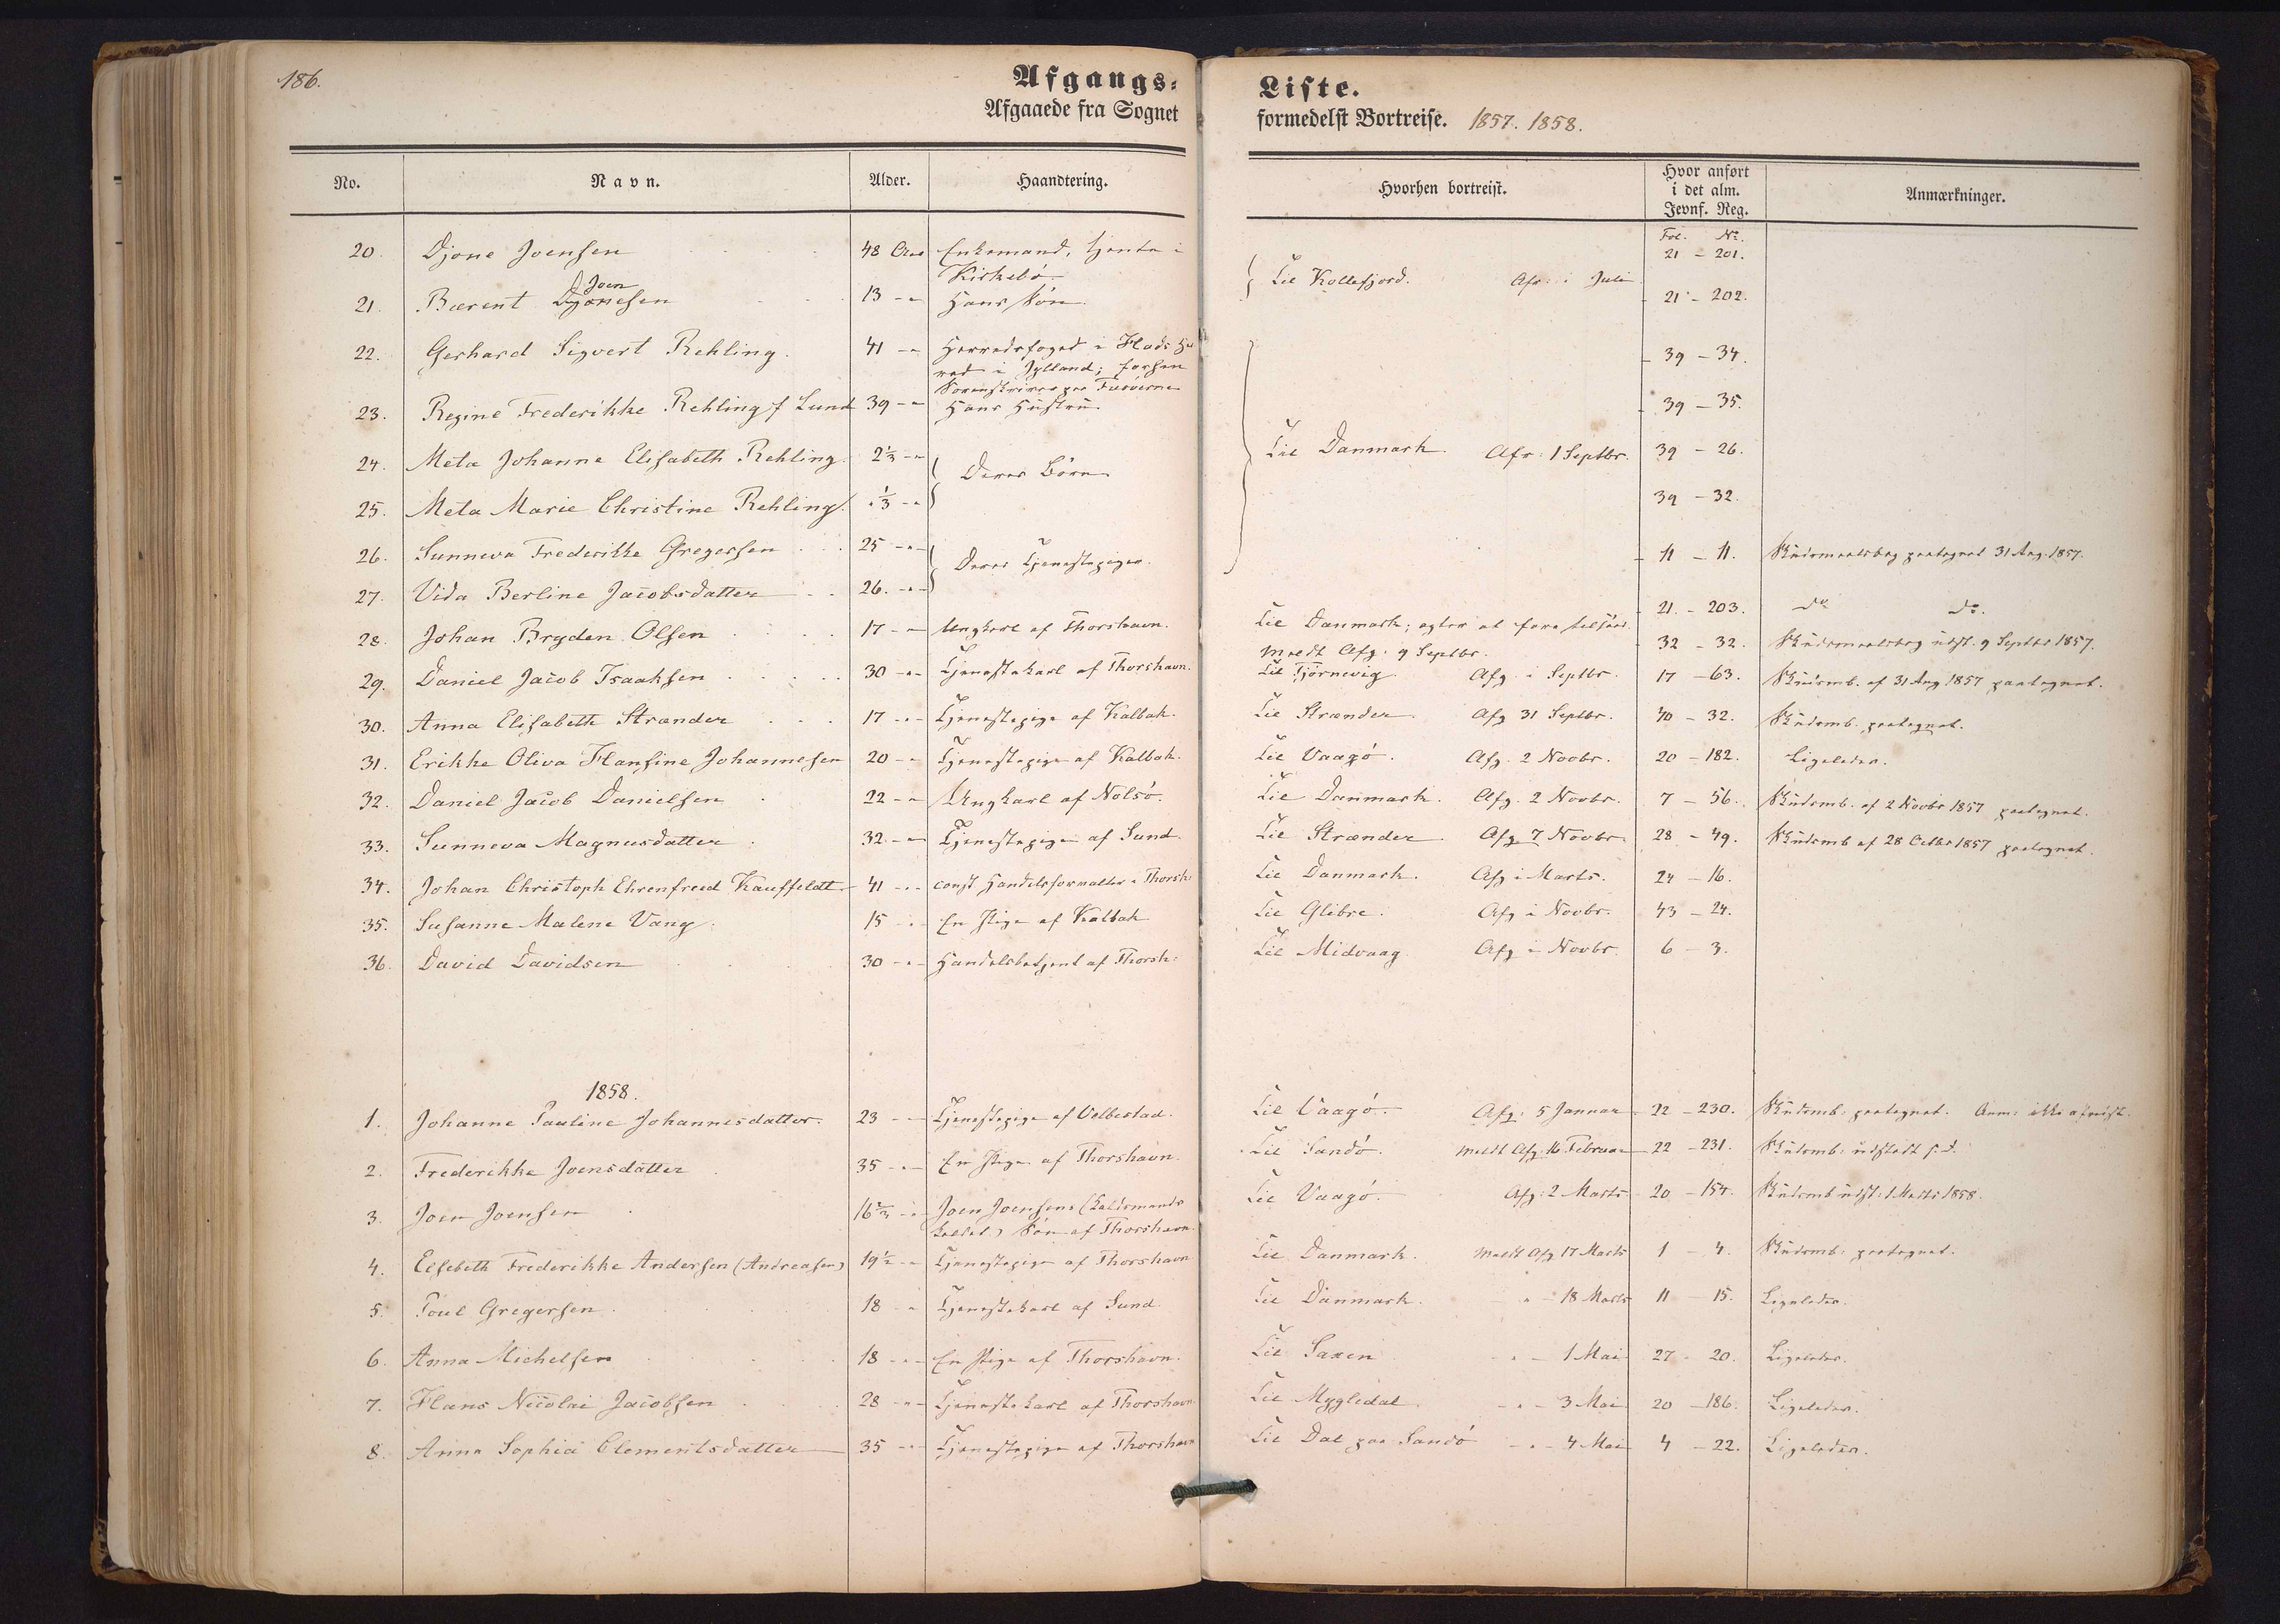 186.
Afgangs-
Liste.
Afgaaede fra Sognet
formedelst Bortreise. 1857. 1858.
No. Navn. Alder. Haandtering. Hvorhen bortreist. Hvor anført i det alm. Jevnf. Reg. Anmærkninger.
Fol. No.
20. Djone Joensen 48 Aar Enkemand, tjente i Kirkebö Til Kollefjord. Afr. i Juli 21 - 201.
21. Bærent Djonesen Joen 13 -"- Hans Sön. 21 - 202.
22. Gerhard Sigvert Rehling. 41 -"- Herredsfoged i Hads Her
red i Jylland; forhen
Sorenskriver paa Færöerne 39 - 34.
23. Regine Frederikke Rehling f Lund 39 -"- Hans Hustru. 39 - 35.
24. Meta Johanne Elisabeth Rehling 2⅓ -"- Deres Börn Til Danmark Afr: 1 Septbr. 39 - 26.
25. Meta Marie Christine Rehling. ⅓ -"- 39 - 32.
26. Sunneva Frederikke Gregersen 25 -"- Deres Tjenestepiger. 11 - 11. Skudsmaalsbog paategnet 31 Aug. 1857.
27. Vida Berline Jacobsdatter 26. -"- 21. - 203. do do.
28. Johan Bryden Olsen 17 -"- Ungkarl af Thorshavn. Til Danmark; agter at fare tilsöes.
meldt Afg. 9 Septbr. 32 - 32. Skudsmaalsbog udst. 9 Septbr 1857.
29. Daniel Jacob Isaaksen 30 -"- Tjenestekarl af Thorshavn. Til Tjörnevig Afg. i Septbr. 17 - 63. Skudsmb. af 31 Aug 1857 paategnet.
30. Anna Elisabeth Strænder 17 -"- Tjenestepige af Kalbak. Til Strænder Afg 31 Septbr. 40 - 32. Skudsmb. paategnet.
31. Erikke Oliva Hansine Johannesen 20 -"- Tjenestepige af Kalbak. Til Vaagö. Afg. 2 Novbr. 20 - 182. Ligeledes.
32. Daniel Jacob Danielsen 22 -"- Ungkarl af Nolsö. Til Danmark. Afg. 2 Novbr. 7 - 56. Skudsmb. af 2 Novbr 1857 paategnet.
33. Sunneva Magnusdatter 32 -"- Tjenestepige af Sund. Til Strænder Afg. 7 Novbr. 28 - 49. Skudsmb af 28 Octbr 1857 paategnet.
34. Johan Christoph Ehrenfried Kauffeldt 41 -"- const Handelsforvalter i Thorsh: Til Danmark. Afg i Marts. 24 - 16.
35. Susanne Malene Vang 15 -"- En Pige af Kalbak Til Glibre. Afg i Novbr. 43 - 24.
36. David Davidsen 30 -"- Handelsbetjent af Thorsh: Til Midvaag Afg i Novbr. 6 - 3.
1858.
1. Johanne Pauline Johannesdatter. 23 -"- Tjenestepige af Velbestad. Til Vaagö. Afg: 5 Januar 22 - 230. Skudsmb: paategnet. Anm: ikke afreist.
2. Frederikke Joensdatter 35 -"- En Pige af Thorshavn. Til Sandö. meldt Afg. 16 Februar 22 - 231. Skudsmb: udstedt s. d.
3. Joen Joensen 16⅔ -"- Joen Joensens (Kaldsmands
kaldet) Sön af Thorshavn. Til Vaagö. Afg: 2 Marts 20 - 154. Skudsmb udst: 1 Marts 1858.
4. Elsebeth Frederikke Andersen (Andreasen) 19½ -"- Tjenestepige af Thorshavn Til Danmark. meldt Afg 17 Marts 1 - 4. Skudsmb: paategnet.
5. Poul Gregersen 18 -"- Tjenestekarl af Sund. Til Danmark. " - 18 Marts 11 - 15. Ligeledes.
6. Anna Michelsen 18 -"- En Pige af Thorshavn. Til Saxen -"- 1 Mai 27 - 20. Ligeledes.
7. Hans Nicolai Jacobsen 28 -"- Tjenestekarl af Thorshavn. Til Mygledal -"- 3 Mai 20 - 186. Ligeledes.
8. Anna Sophia Clementsdatter 35 -"- Tjenestepige af Thorshavn Til Dal paa Sandö -"- 4 Mai 4 - 22. Ligeledes.